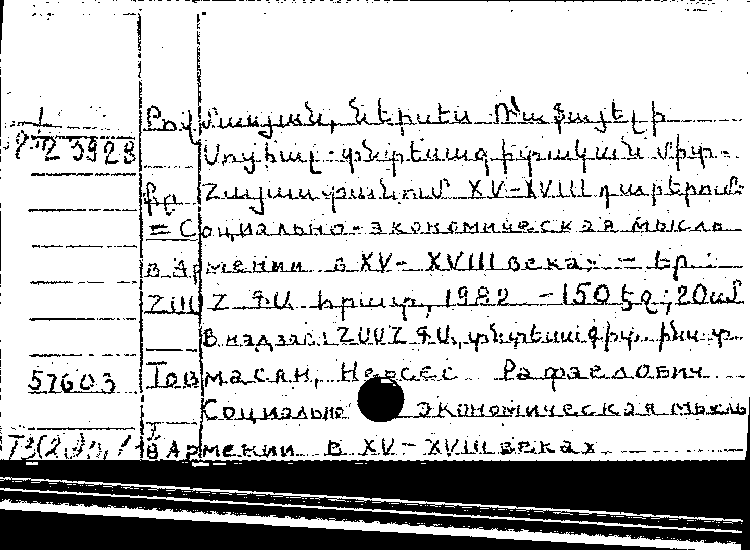 Թովմասյան, Ներսես Ռաֆայելի
3923
Սոցիալ-տնտեսագիտական միտ-
քը Հայաստանում XV-XVIII դարերում
= Социально-экономическая мысль
в Армении в XV-XVIII веках — Եր.:
ՀՍՍՀ ԳԱ հրատ, 1982 -150 էջ; 20սմ
В надзаг: ՀՍՍՀ ԳԱ, տնտեսագիտ. ինստ.
57603 Товмасян, Нерсес Рафаелович
Социально экономическая мысль
в Армении в XV-XVIII веках